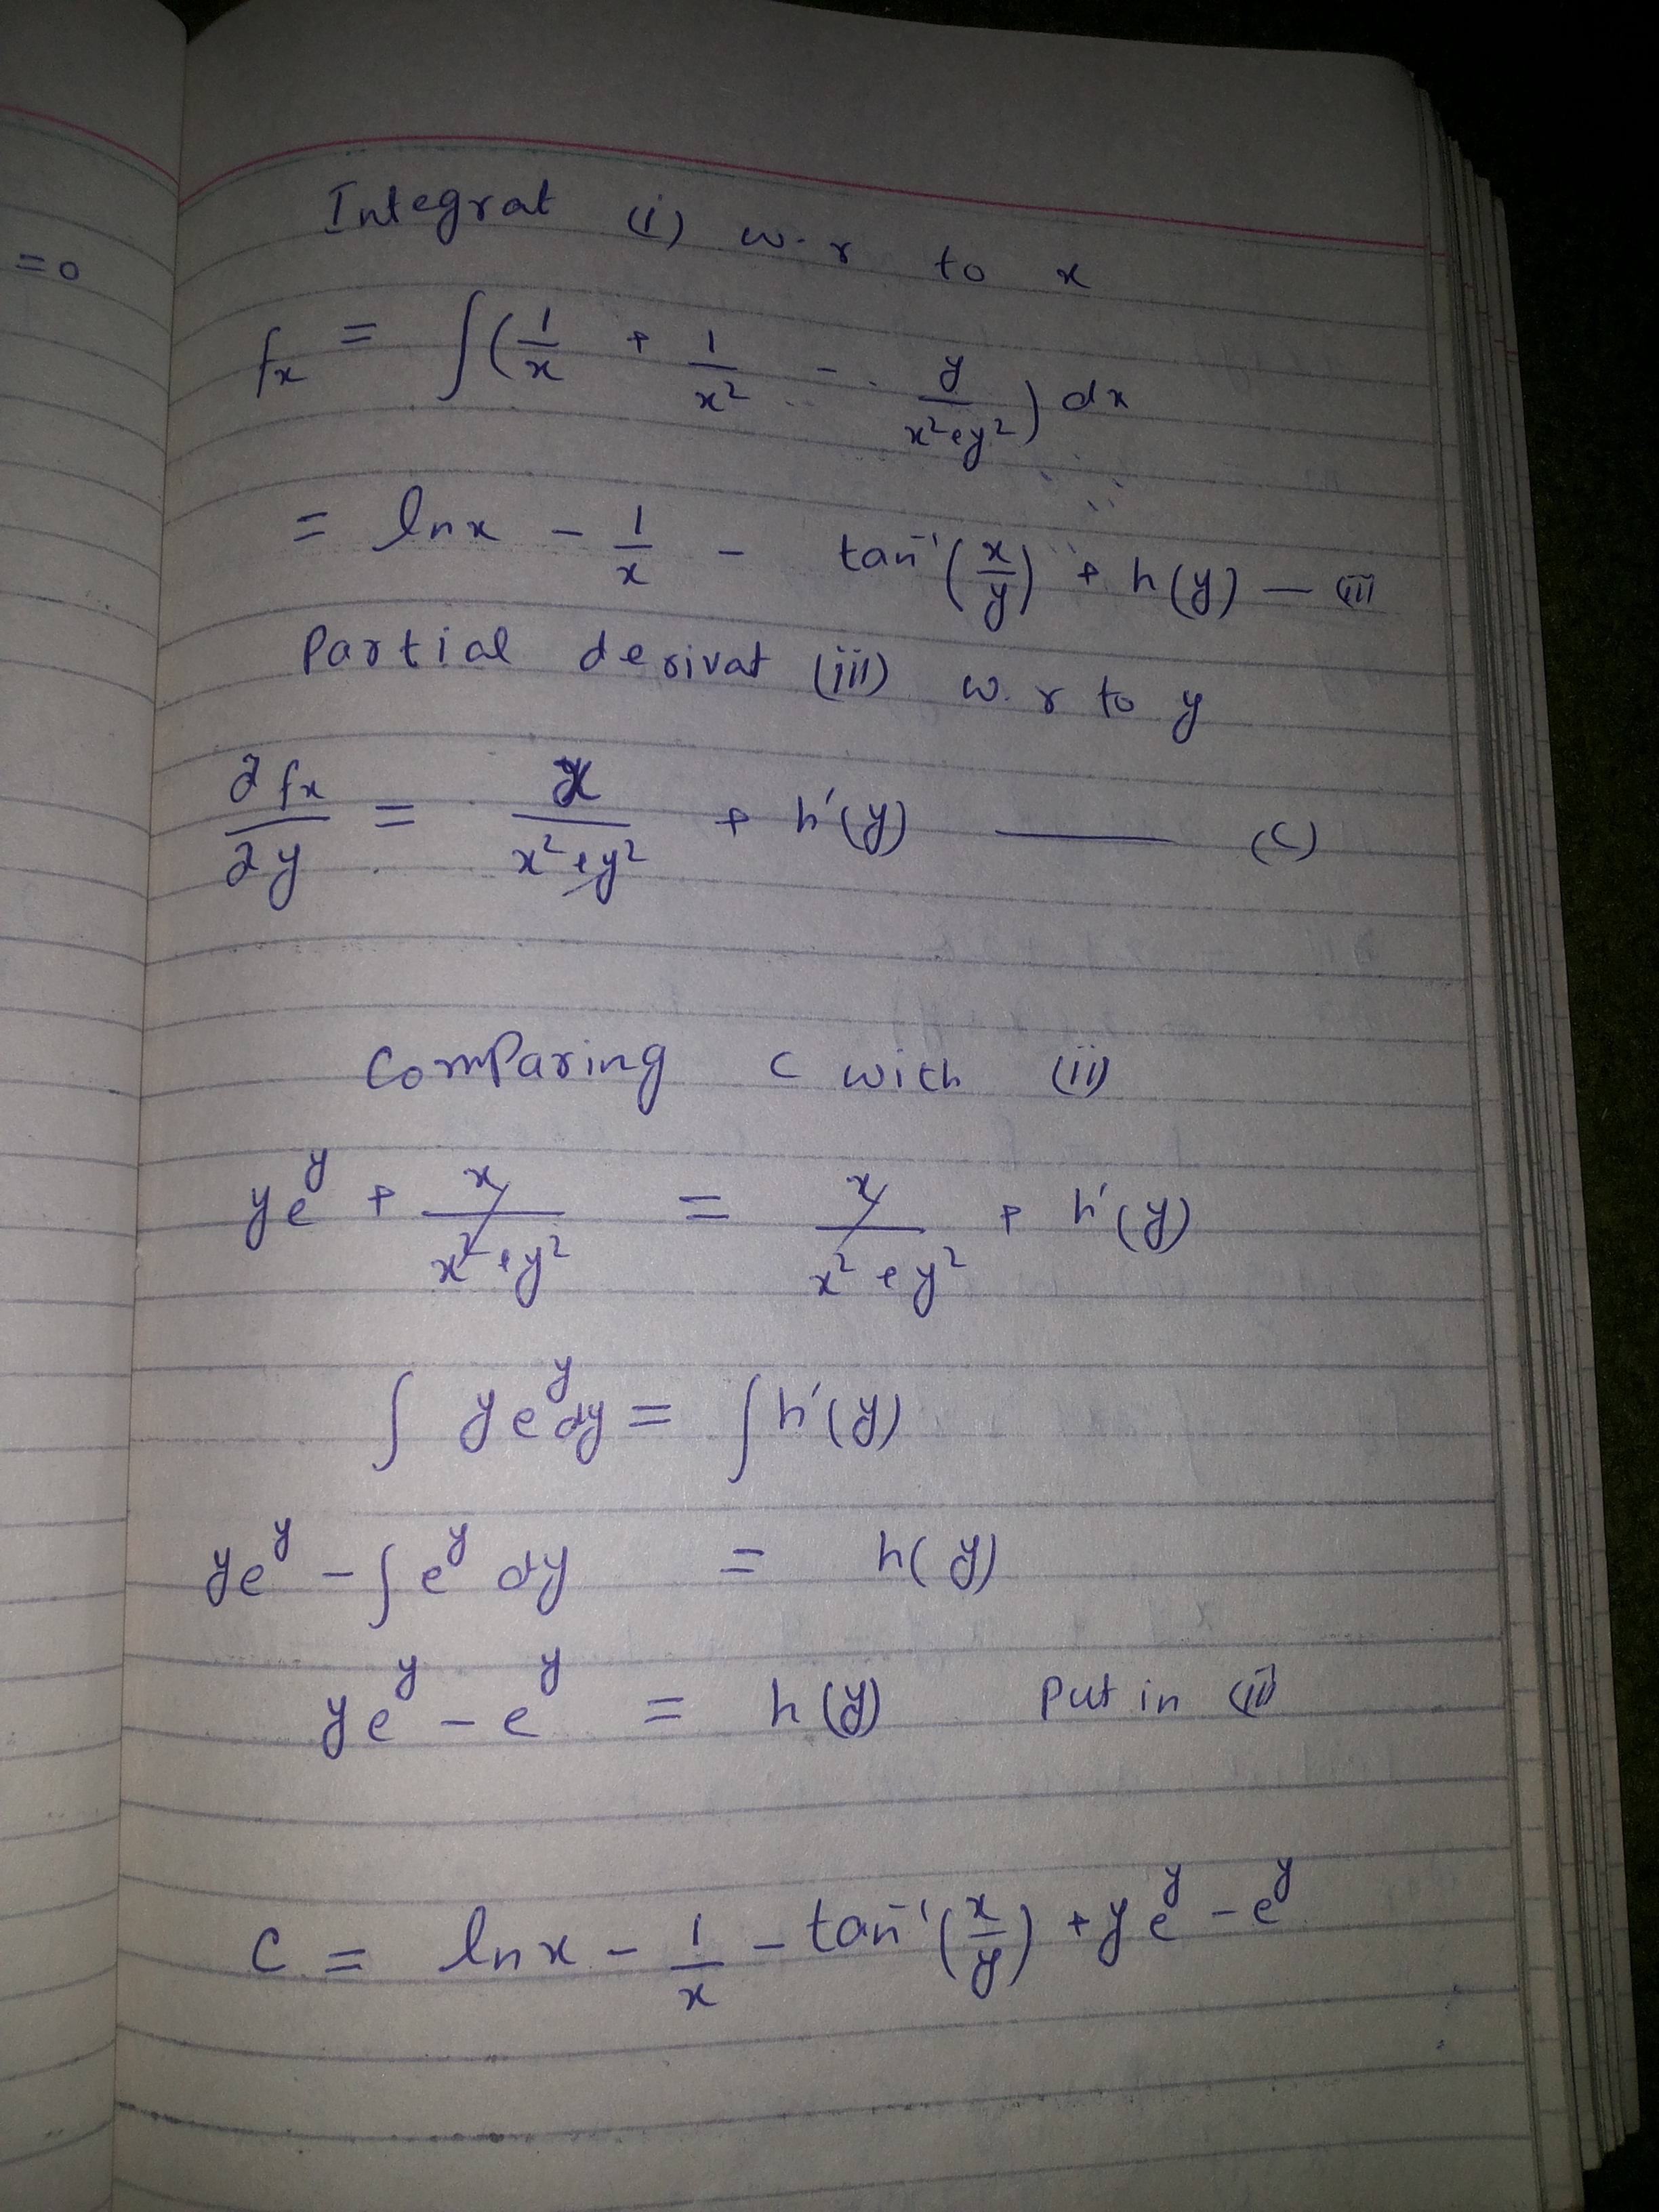 = 0
Integrat (i) w.r to x
fx = ∫(1/x + 1/x² - y/(x²+y²)) dx
= lnx - 1/x - tan⁻¹(x/y) + h(y) — (iii)
Partial derivat (iii) w.r to y
∂fx/∂y = x/(x²+y²) + h'(y) —— (C)
Comparing C with (ii)
ye^y + x/(x²+y²) = x/(x²+y²) + h'(y)
∫ ye^y dy = ∫h'(y)
ye^y - ∫e^y dy = h(y)
ye^y - e^y = h(y) Put in (iii)
C = lnx - 1/x - tan⁻¹(x/y) + ye^y - e^y